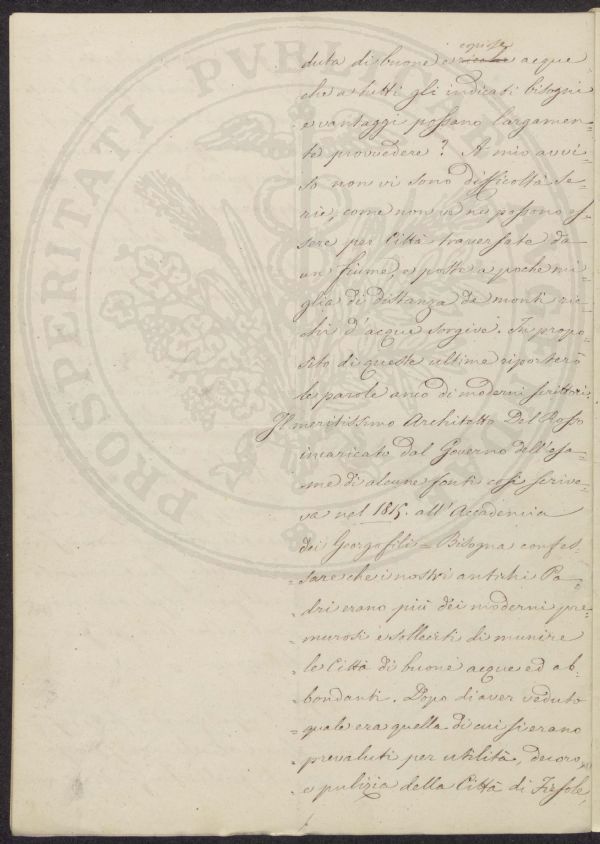 copiose
duta di buone e ricolte acque
che a tutti gli indicati bisogni
e vantaggi possano largamen=
te provvedere? A mio avvi=
so non vi sono difficoltà se=
rie, come non ve ne possono es=
sere per Città traversate da
un fiume, e poste a poche mi=
glia di distanza da monti ric=
chi d'acque sorgive. In propo=
sito di queste ultime riporterò
le parole anco di moderni scrittori.
Il meritissimo Architetto Del Rosso
incaricato dal Governo dell'esa=
me di alcune fonti così scrive=
va nel 1815. all'Accademia
dei Georgofili = Bisogna confes=
= sare che i nostri antichi Pa=
= dri erano più dei moderni pre=
= murosi e solleciti di munire
= le Città di buone acque ed ab=
= bondanti. Dopo di aver veduto
= quale era quella di cui si erano
= prevaluti per utilità, decoro,
= e pulizia della Città di Fiesole,
PROSPERITATI PVBLICAE AVGENDAE